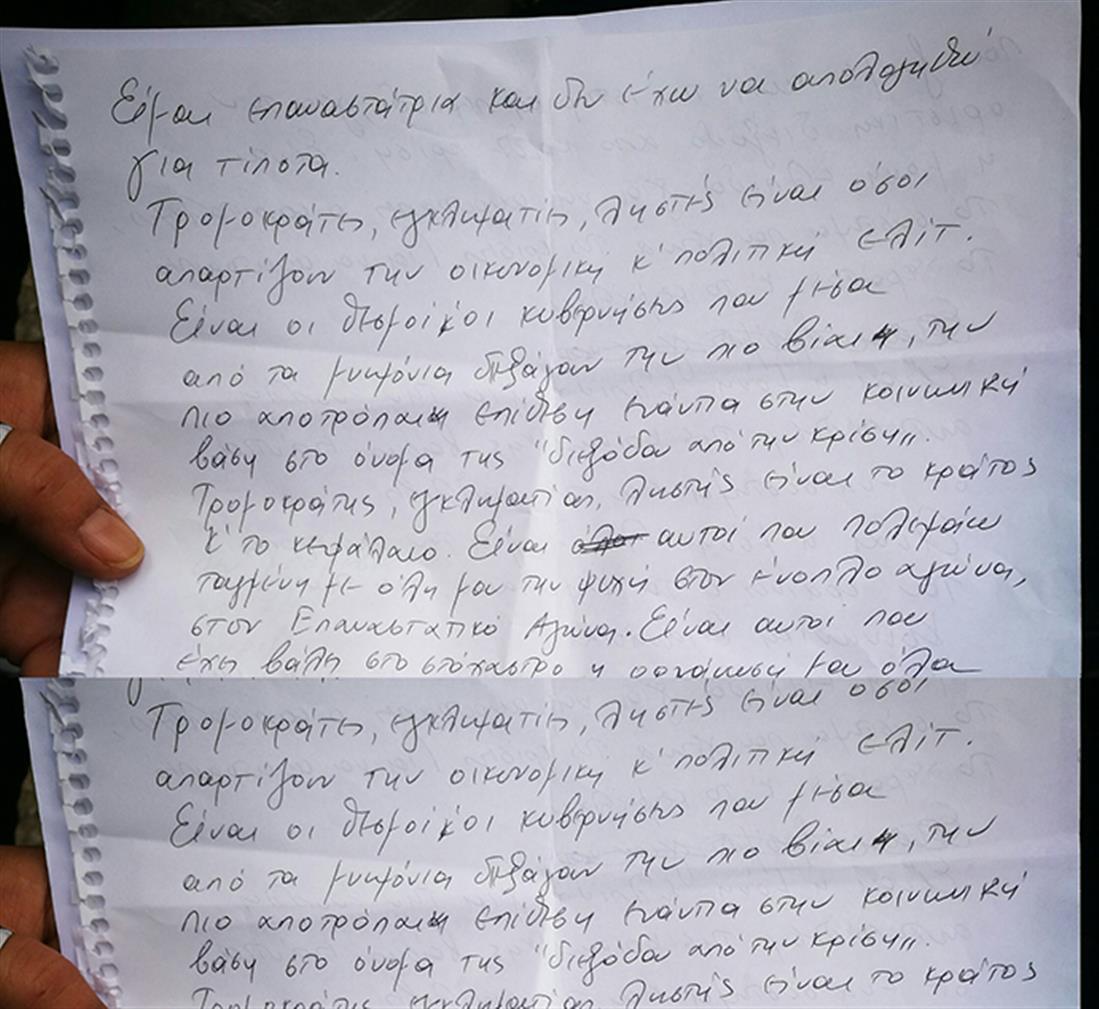 Είμαι επαναστάτρια και δεν έχω να απολογηθώ
για τίποτα.
Τρομοκράτες, εγκληματίες, ληστές είναι όσοι
απαρτίζουν την οικονομική κ' πολιτική ελίτ.
Είναι οι θεσμοί κ' οι κυβερνήσεις που μέσα
από τα μνημόνια διεξάγουν την πιο βίαιη, την
πιο αποτρόπαιη επίθεση ενάντια στην κοινωνική
βάση στο όνομα της "διεξόδου από την κρίση".
Τρομοκράτης, εγκληματίας, ληστής είναι το κράτος
κ' το κεφάλαιο. Είναι αυτοί που πολεμάω
ταγμένη με όλη μου την ψυχή στον ένοπλο αγώνα,
στον Επαναστατικό Αγώνα. Είναι αυτοί που
έχει βάλει στο στόχαστρο η οργάνωσή μου όλα
Τρομοκράτες, εγκληματίες, ληστές είναι όσοι
απαρτίζουν την οικονομική κ' πολιτική ελίτ.
Είναι οι θεσμοί κ' οι κυβερνήσεις που μέσα
από τα μνημόνια διεξάγουν την πιο βίαιη, την
πιο αποτρόπαιη επίθεση ενάντια στην κοινωνική
βάση στο όνομα της "διεξόδου από την κρίση".
Τρομοκράτης, εγκληματίας, ληστής είναι το κράτος